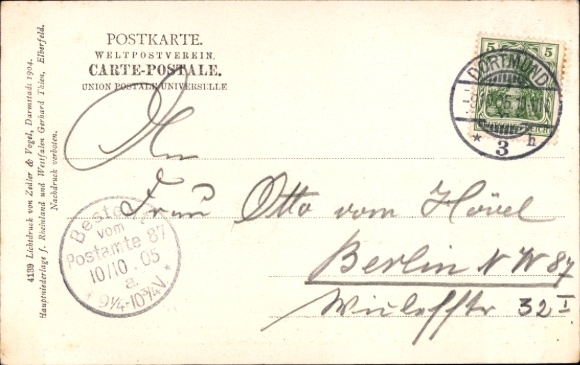 POSTKARTE.
WELTPOSTVEREIN.
CARTE-POSTALE.
UNION POSTALE UNIVERSELLE
5 5
DORTMUND
* 3 h
An
Frau Otto vom Hövel
Berlin N W 87
Wullefstr 32 I
Bestellt
vom
Postamte 87
10/10 05
a.
* 9¼-10¾V *
4139 Lichtdruck von Zedler & Vogel, Darmstadt 1904.
Hauptniederlage f. Rheinland und Westfalen Gerhard Thien, Elberfeld.
Nachdruck verboten.